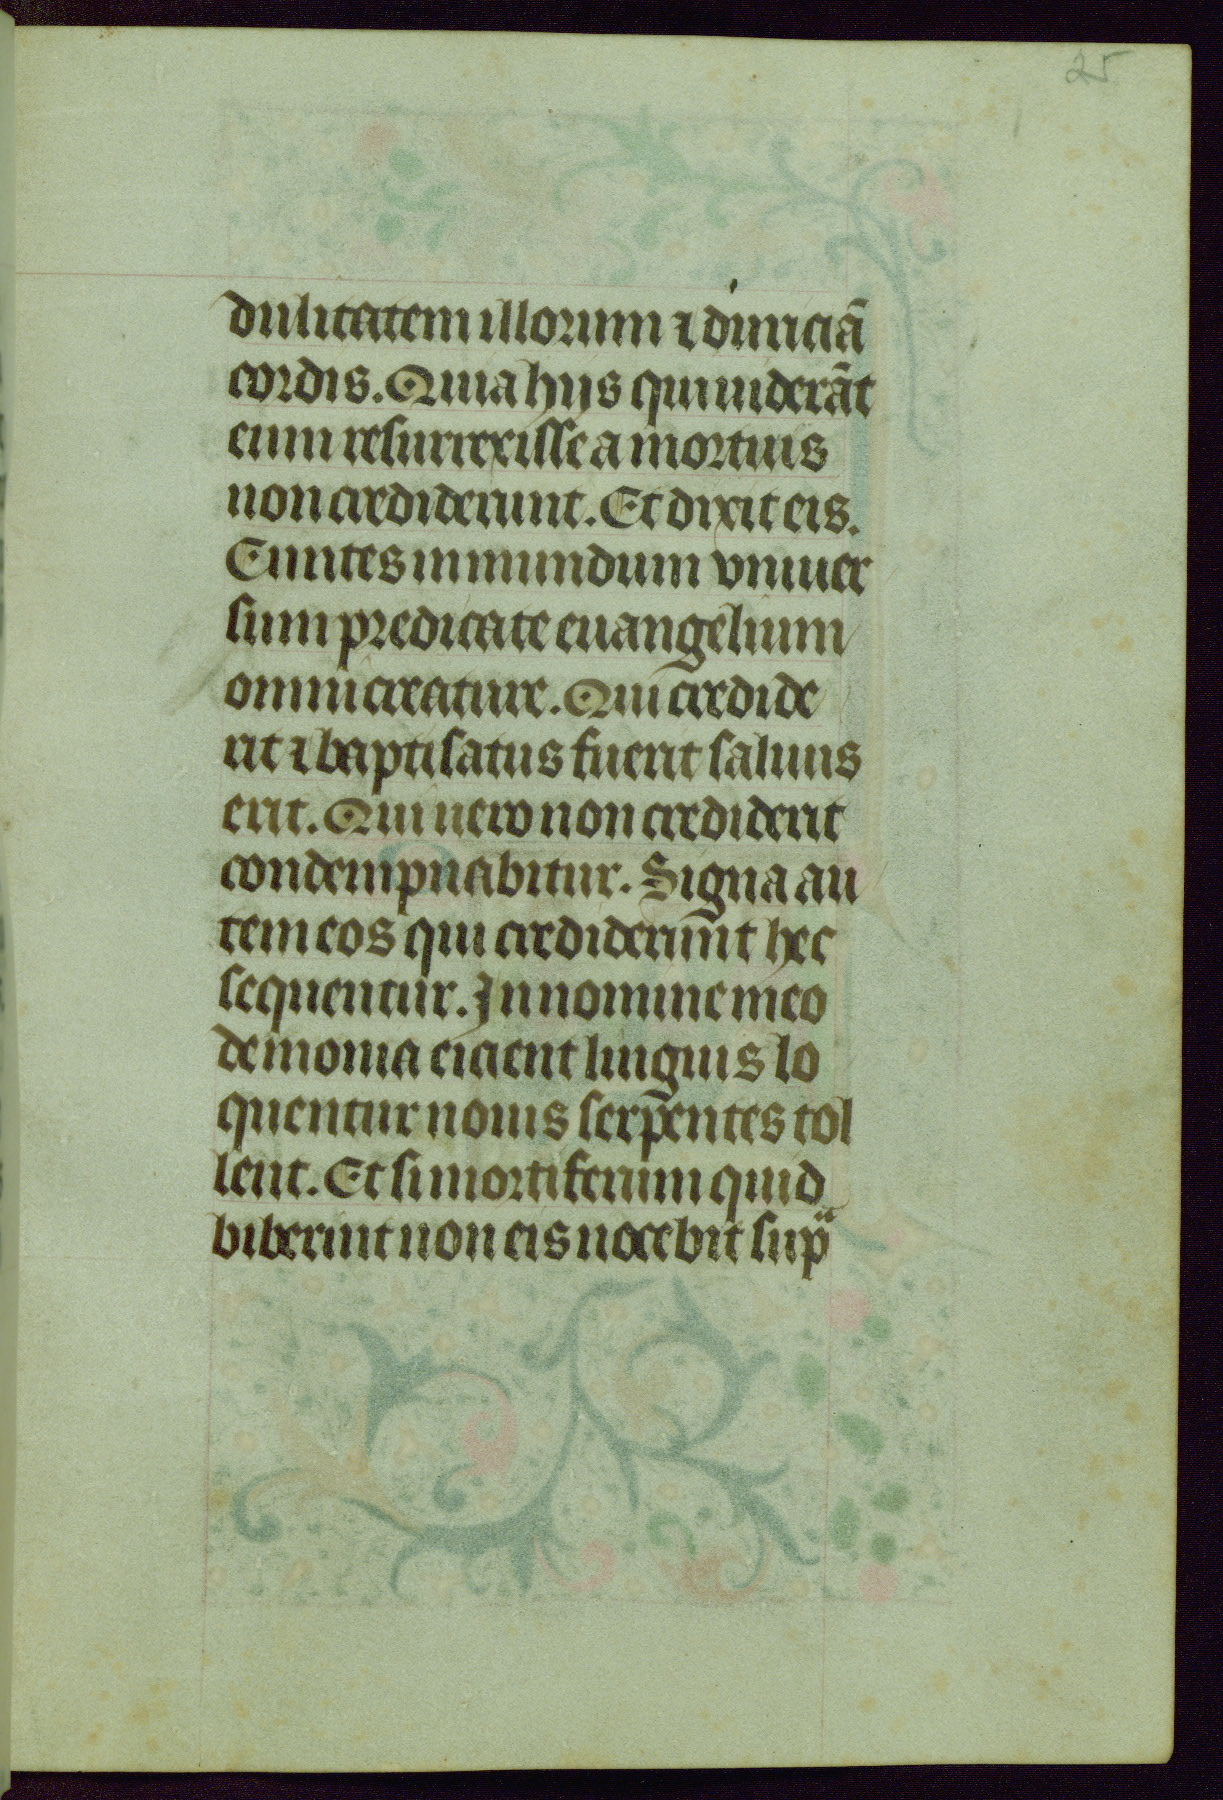 25
dulitatem illorum ⁊ duriciā
cordis. Quia hijs qui uiderāt
eum resurrexisse a mortuis
non crediderunt. Et dixit eis.
Euntes in mundum vniuer
sum predicate euangelium
omni creature. Qui credide
rit ⁊ baptisatus fuerit saluus
erit. Qui uero non crediderit
condempnabitur. Signa au
tem eos qui crediderūnt hec
sequentur. In nomine meo
demonia eicient linguis lo
quentur nouis serpentes tol
lent. Et si mortiferum quid
biberint non eis nocebit supᵃ